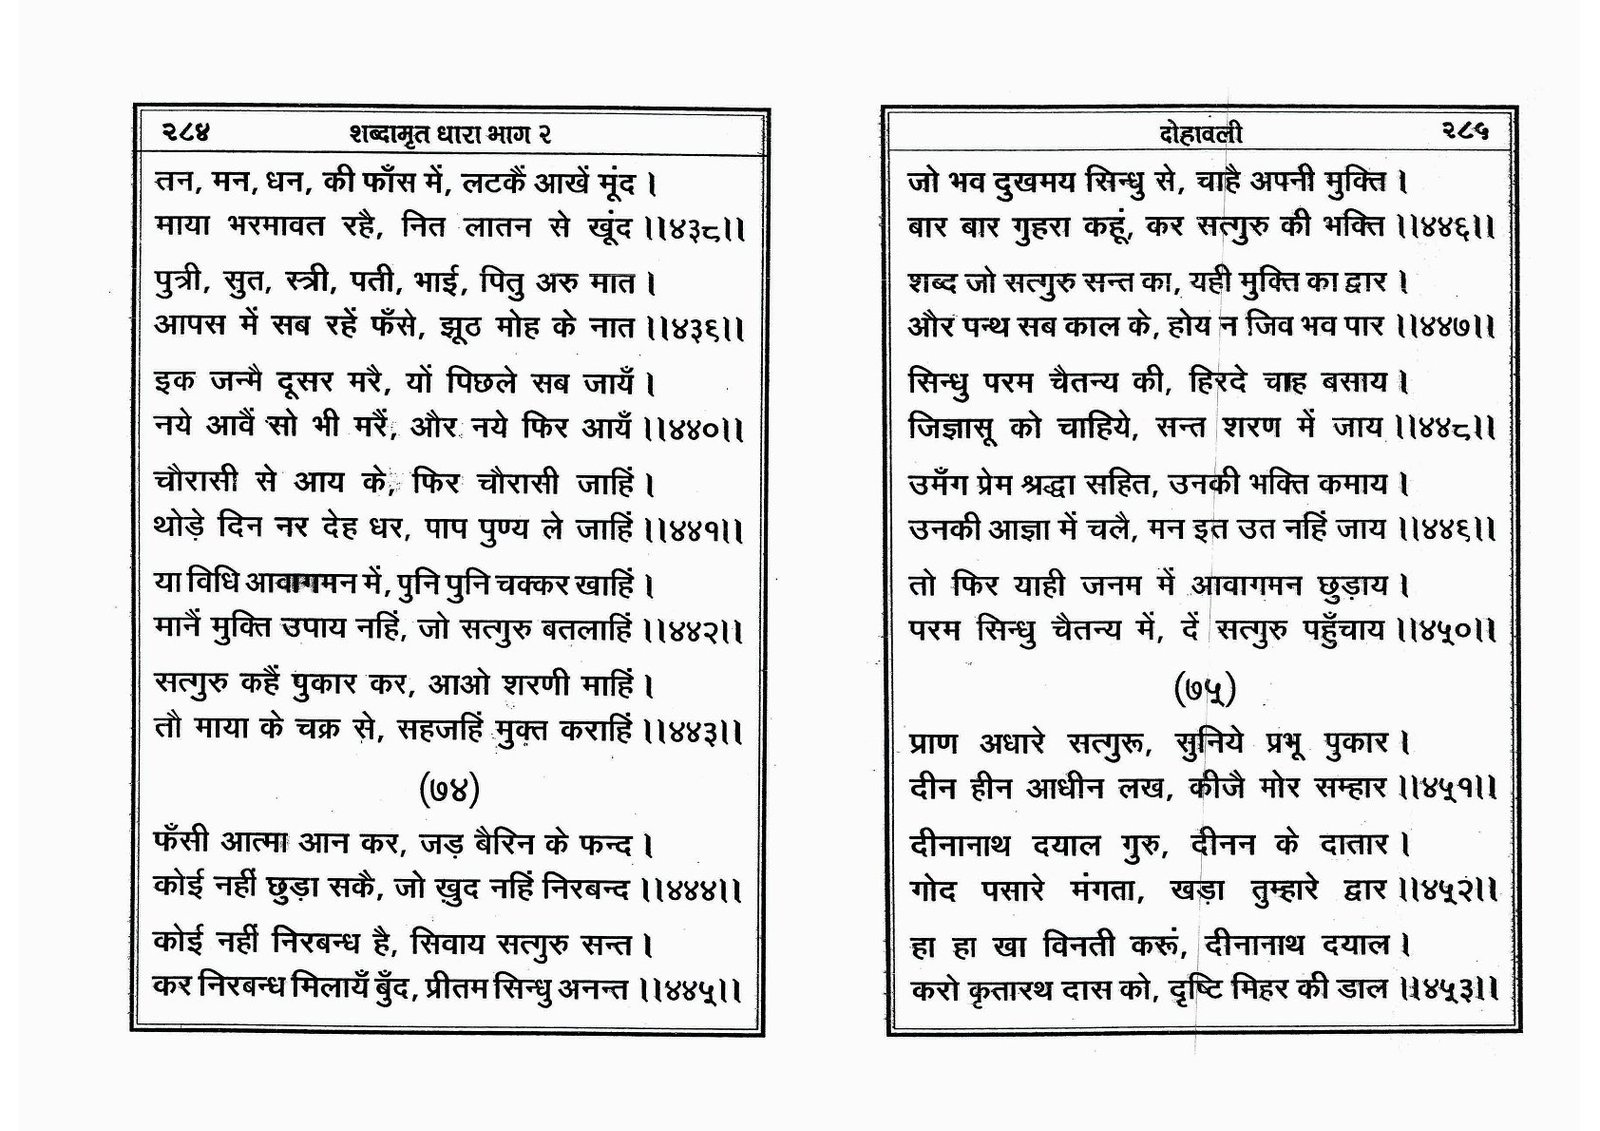 २८४ शब्दामृत धारा भाग २
तन, मन, धन, की फाँस में, लटकैं आखें मूंद ।
माया भरमावत रहै, नित लातन से खूंद ।।४३८।।
पुत्री, सुत, स्त्री, पती, भाई, पितु अरु मात ।
आपस में सब रहें फँसे, झूठ मोह के नात ।।४३९।।
इक जन्मै दूसर मरै, यों पिछले सब जायँ ।
नये आवैं सो भी मरैं, और नये फिर आयँ ।।४४०।।
चौरासी से आय के, फिर चौरासी जाहिं ।
थोड़े दिन नर देह धर, पाप पुण्य ले जाहिं ।।४४१।।
या विधि आवागमन में, पुनि पुनि चक्कर खाहिं ।
मानैं मुक्ति उपाय नहिं, जो सत्गुरु बतलाहिं ।।४४२।।
सत्गुरु कहैं पुकार कर, आओ शरणी माहिं ।
तौ माया के चक्र से, सहजहिं मुक्त कराहिं ।।४४३।।
(७४)
फँसी आत्मा आन कर, जड़ बैरिन के फन्द ।
कोई नहीं छुड़ा सकै, जो ख़ुद नहिं निरबन्द ।।४४४।।
कोई नहीं निरबन्ध है, सिवाय सत्गुरु सन्त ।
कर निरबन्ध मिलायँ बुँद, प्रीतम सिन्धु अनन्त ।।४४५।।
दोहावली २८५
जो भव दुखमय सिन्धु से, चाहै अपनी मुक्ति ।
बार बार गुहरा कहूं, कर सत्गुरु की भक्ति ।।४४६।।
शब्द जो सत्गुरु सन्त का, यही मुक्ति का द्वार ।
और पन्थ सब काल के, होय न जिव भव पार ।।४४७।।
सिन्धु परम चैतन्य की, हिरदे चाह बसाय ।
जिज्ञासू को चाहिये, सन्त शरण में जाय ।।४४८।।
उमँग प्रेम श्रद्धा सहित, उनकी भक्ति कमाय ।
उनकी आज्ञा में चलै, मन इत उत नहिं जाय ।।४४९।।
तो फिर याही जनम में आवागमन छुड़ाय ।
परम सिन्धु चैतन्य में, दें सत्गुरु पहुँचाय ।।४५०।।
(७५)
प्राण अधारे सत्गुरू, सुनिये प्रभू पुकार ।
दीन हीन आधीन लख, कीजै मोर सम्हार ।।४५१।।
दीनानाथ दयाल गुरु, दीनन के दातार ।
गोद पसारे मंगता, खड़ा तुम्हारे द्वार ।।४५२।।
हा हा खा विनती करूं, दीनानाथ दयाल ।
करो कृतारथ दास को, दृष्टि मिहर की डाल ।।४५३।।